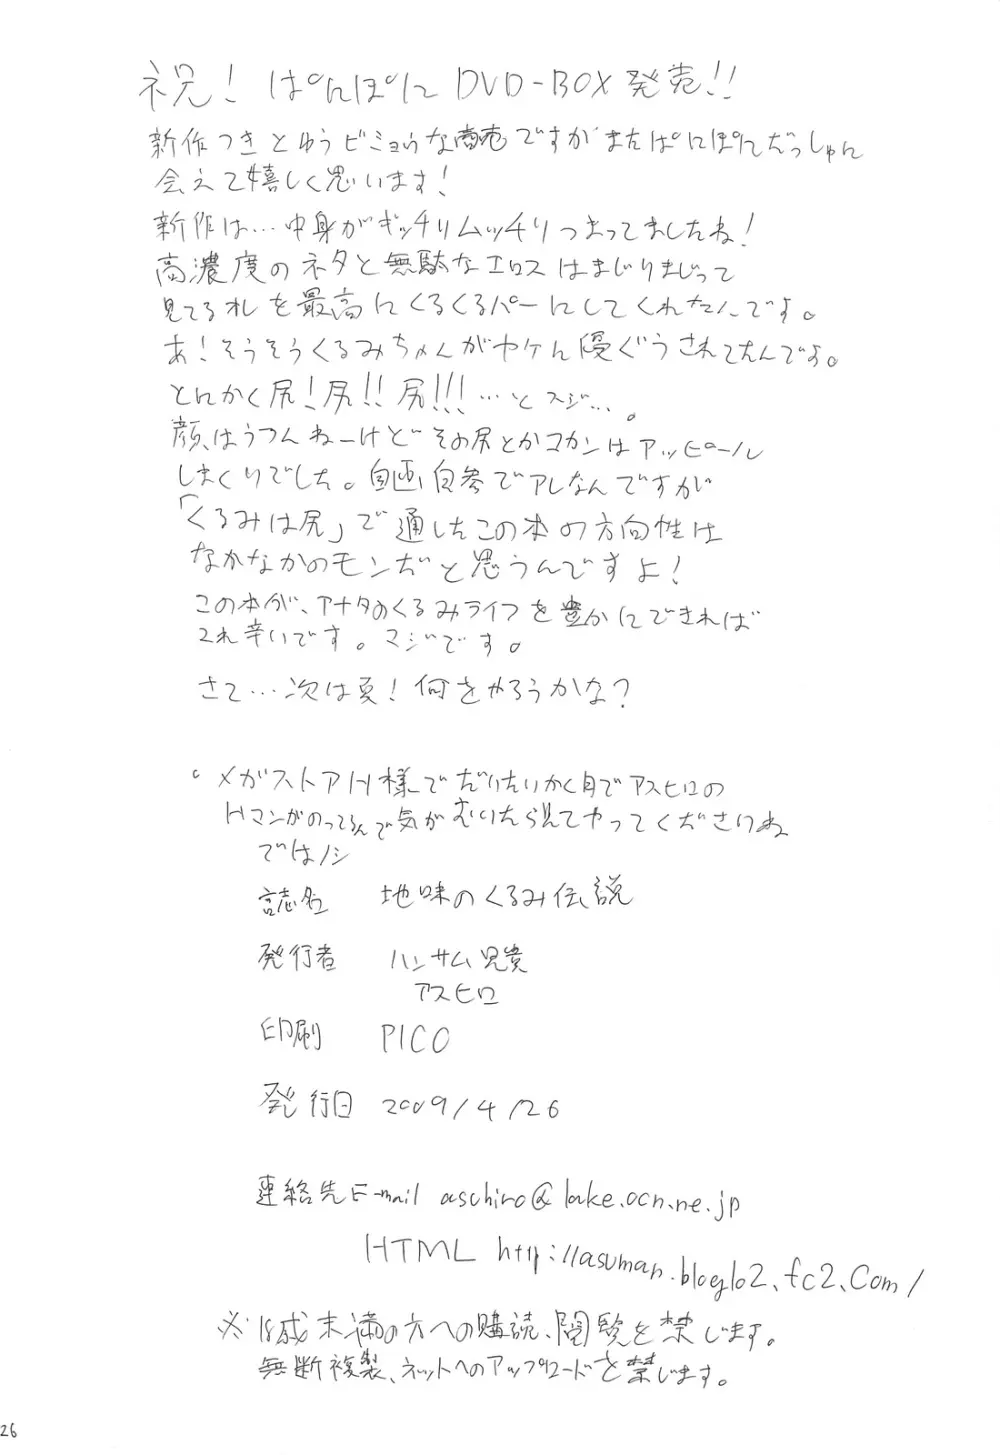 祝! ぱにぽに DVD-BOX 発売!!
新作つきとゆうビミョウな商売ですがまたぱにぽにだっしゅに
会えて嬉しく思います!
新作は…中身がギッチリムッチリつまってましたね!
高濃度のネタと無駄なエロスはまじりまじって
見てるオレを最高にくるくるパーにしてくれたんです。
あ!そうそうくるみちゃんがヤケに優ぐうされてたんですよ。
とにかく尻!尻!!尻!!!…とスジ…。
顔はうつんねーけどその尻とかコカンはアッピール
しまくりでした。自画自参でアレなんですが
「くるみは尻」で通したこの本の方向性は
なかなかのモンだと思うんですよ!
この本が、アナタのくるみライフを豊かにできれば
これ幸いです。マジです。
さて…次は夏!何をやろうかな?
。メガストアH様でだいたいかく月でアスヒロの
Hマンガのってるんで気がむいたら見てやってくださいね
ではノシ
誌名 地味のくるみ伝説
発行者 ハンサム兄貴
アスヒロ
印刷 PICO
発行日 2009/4/26
連絡先E-mail aschiro@lake.ocn.ne.jp
HTML http://asuman.blog102.fc2.com/
※18歳未満の方への購読、閲覧を禁じます。
無断複製、ネットへのアップロードを禁じます。
26